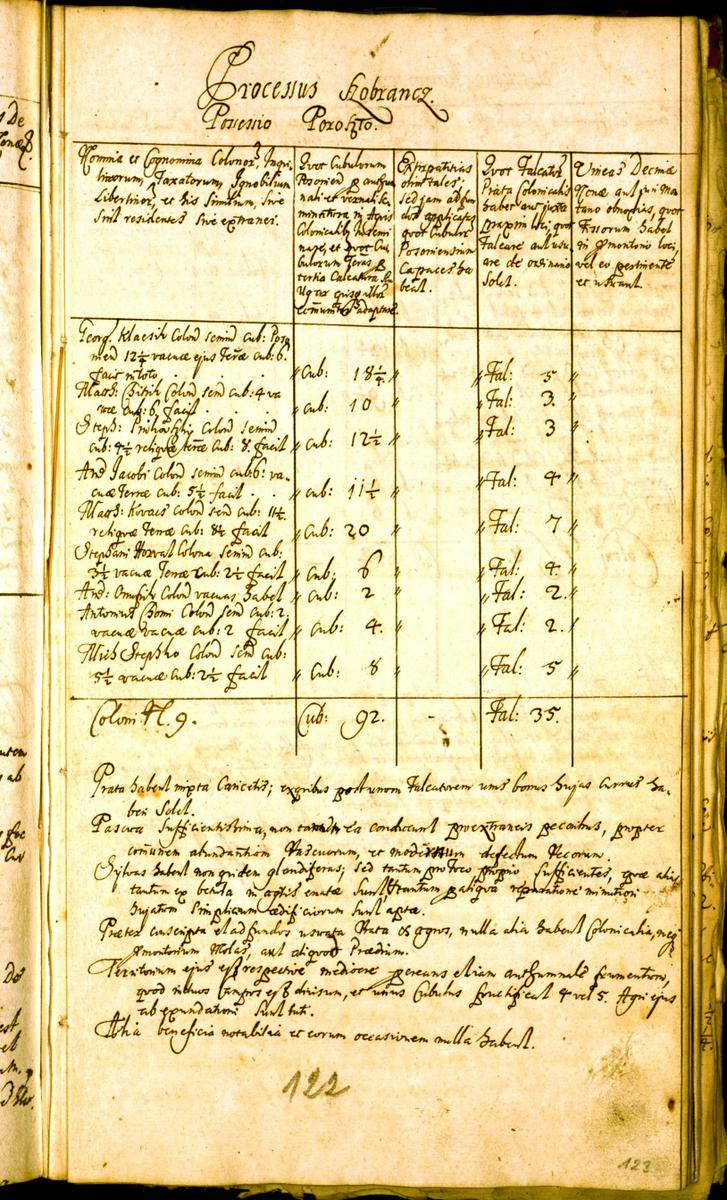 Processus Kobrancz.
Possessio Poroszto.
Nomina et Cognomina Colonor
Taxatorum, Ignobilium
Libertinor, et his Similium, Sive
Sint residentes Sive extranei.
Quot Cubulorum
Posonien
nali et vernali
in Agris
Colonicalib
et quot Cu
bulorum Terras
tertia Calcatura
Extirpatitias
olim tales,
sed jam ad fun
dos applicatas
quot Cubulor
Posoniensium
Capaces ha
beat.
Quot Falcator
Prata Colonicalia
habet aut juxta
loci, quot
Falcare aut usu
are de ordinario
Solet.
Vineas Decimæ
Nonæ aut juri Mon
tano obnoxias, quot
Fossorum habet
in promontorio loci,
vel eo pertinente
et usuant.
Georg. Klacsik Colon semin Cub: Poso
nien 12¼ vacuæ ejus Terræ Cub: 6.
facit in toto . . . Cub: 18¼ Fal: 5
Colon sen cub: 4 va
cuæ Cub: 6 facit . . . Cub: 10 Fal: 3.
Steph: Colon semin
cub: 4½ reliquæ terræ Cub: 8. facit Cub: 12½ Fal: 3
And Jacobi Colon semin cub: 6: va-
cuæ Terræ cub: 5½ facit . . cub: 11½ Fal: 4
Matth: Kovacs Colon sen cub: 11½
reliquæ Terræ cub: 8½ facit Cub: 20 Fal: 7
Stephani Horvat Colona semin Cub:
3½ vacuæ Terræ Cub: 2½ facit Cub: 6 Fal: 4.
And: Colon vacuas habet Cub: 2 Fal: 2.
Antonius Bomi Colon sen cub: 2.
vacuæ vacuæ cub: 2 facit Cub: 4. Fal: 2.
Mich Stephko Colon sen Cub:
5½ vacuæ Cub: 2½ facit Cub: 8 Fal: 5
Coloni N. 9. Cub: 92. Fal: 35.
Prata habent mixta Caricetis; ex quibus post unum Falcatorem unus bonus hujas Currus ha-
beri Solet.
Pascua Sufficientissima, non tamen ea conducunt pro extraneis pecoribus, propter
communem abundantiam Pascuorum, et modernum defectum Pecorum.
Sylvas habent non quidem glandiferas; sed tantum pro foco proprio sufficientes, quæ
tantum ex betula in aptis enatæ Sunt, tantum pro aliqua reparatione minutiori
hujatum Simplicium ædificiorum Sunt aptæ.
Præter conscripta et ad fundos usuata Prata et agros, nulla alia habent Colonicalia, neq
Promontorium Molas, aut aliquod Prædium.
Territorium ejus est respective mediocre procreans etiam authumnale frumentum,
quod in duos campos est divisum, et unus Cubulus fructificat 4 vel 5. Agri ejus
ab exundationi Sunt tuti.
Alia beneficia notabilia et eorum occasionem nulla habent.
122
123